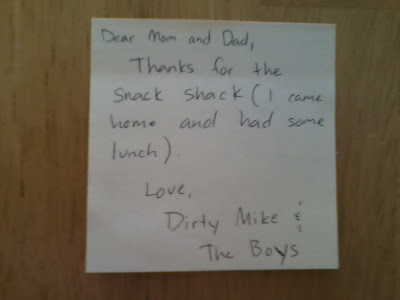 Dear Mom and Dad,
Thanks for the
Snack Shack (I came
home and had some
lunch).
Love,
Dirty Mike &
The Boys